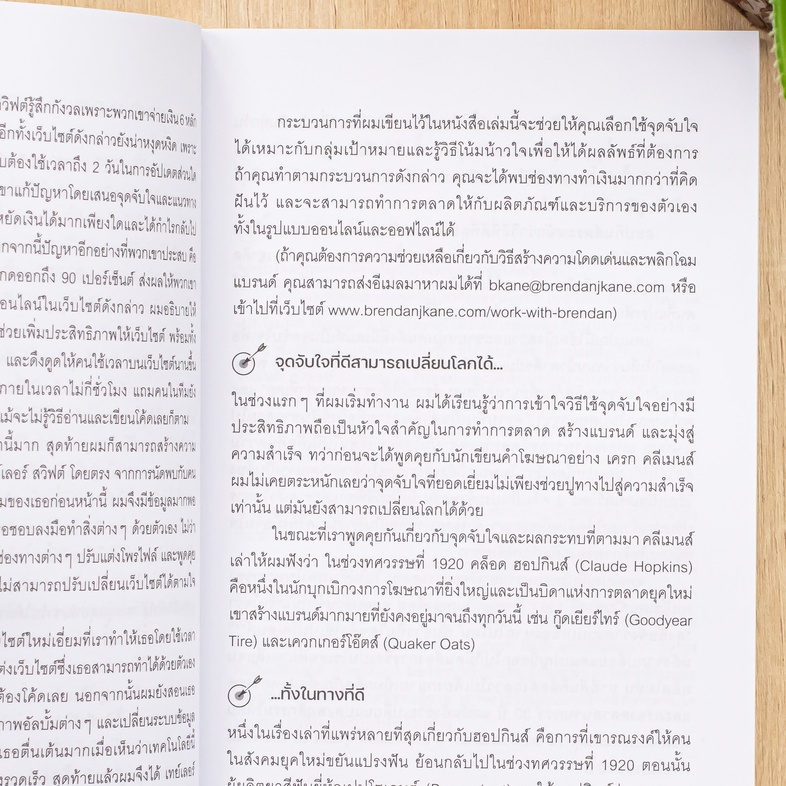 วิฟต์รู้สึกกังวลเพราะพวกเขาจ่ายเงิน 6 หลัก
อีกทั้งเว็บไซต์ดังกล่าวยังน่าหงุดหงิด เพราะ
ต้องใช้เวลาถึง 2 วันในการอัปเดตส่วนใด
ขาแก้ปัญหาโดยเสนอจุดจับใจและแนวทาง
หยัดเงินได้มากเพียงใดและได้กำไรกลับไป
กจากนี้ปัญหาอีกอย่างที่พวกเขาประสบ คือ
กดออกถึง 90 เปอร์เซ็นต์ ส่งผลให้พวกเขา
อนไลน์ในเว็บไซต์ดังกล่าว ผมอธิบายให้
ช่วยเพิ่มประสิทธิภาพให้เว็บไซต์ พร้อมทั้ง
และดึงดูดให้คนใช้เวลาบนเว็บไซต์นานขึ้น
ภายในเวลาไม่กี่ชั่วโมง แถมคนในทีมยัง
แม้จะไม่รู้วิธีอ่านและเขียนโค้ดเลยก็ตาม
านี้มาก สุดท้ายผมก็สามารถสร้างความ
เลอร์ สวิฟต์ โดยตรง จากการนัดพบกับคน
มของเธอก่อนหน้านี้ ผมจึงมีข้อมูลมากพอ
อชอบลงมือทำสิ่งต่าง ๆ ด้วยตัวเอง ไม่ว่า
ช่องทางต่าง ๆ ปรับแต่งโพรไฟล์ และพูดคุย
ไม่สามารถปรับเปลี่ยนเว็บไซต์ได้ตามใจ
ไซต์ใหม่เอี่ยมที่เราทำให้เธอโดยใช้เวลา
ต่งเว็บไซต์ซึ่งเธอสามารถทำได้ด้วยตัวเอง
ต้องโค้ดเลย นอกจากนั้นผมยังสอนเธอ
าพอัลบั้มต่าง ๆ และเปลี่ยนระบบข้อมูล
เธอตื่นเต้นมากเมื่อเห็นว่าเทคโนโลยีนี้
รวดเร็ว สุดท้ายแล้วผมจึงได้ เทย์เลอร์
กระบวนการที่ผมเขียนไว้ในหนังสือเล่มนี้จะช่วยให้คุณเลือกใช้จุดจับใจ
ได้เหมาะกับกลุ่มเป้าหมายและรู้วิธีโน้มน้าวใจเพื่อให้ได้ผลลัพธ์ที่ต้องการ
ถ้าคุณทำตามกระบวนการดังกล่าว คุณจะได้พบช่องทางทำเงินมากกว่าที่คิด
ฝันไว้ และจะสามารถทำการตลาดให้กับผลิตภัณฑ์และบริการของตัวเอง
ทั้งในรูปแบบออนไลน์และออฟไลน์ได้
(ถ้าคุณต้องการความช่วยเหลือเกี่ยวกับวิธีสร้างความโดดเด่นและพลิกโฉม
แบรนด์ คุณสามารถส่งอีเมลมาหาผมได้ที่ bkane@brendanjkane.com หรือ
เข้าไปที่เว็บไซต์ www.brendanjkane.com/work-with-brendan)
จุดจับใจที่ดีสามารถเปลี่ยนโลกได้...
ในช่วงแรก ๆ ที่ผมเริ่มทำงาน ผมได้เรียนรู้ว่าการเข้าใจวิธีใช้จุดจับใจอย่างมี
ประสิทธิภาพถือเป็นหัวใจสำคัญในการทำการตลาด สร้างแบรนด์ และมุ่งสู่
ความสำเร็จ ทว่าก่อนจะได้พูดคุยกับนักเขียนคำโฆษณาอย่าง เครก คลีเมนส์
ผมไม่เคยตระหนักเลยว่าจุดจับใจที่ยอดเยี่ยมไม่เพียงช่วยปูทางไปสู่ความสำเร็จ
เท่านั้น แต่มันยังสามารถเปลี่ยนโลกได้ด้วย
ในขณะที่เราพูดคุยกันเกี่ยวกับจุดจับใจและผลกระทบที่ตามมา คลีเมนส์
เล่าให้ผมฟังว่า ในช่วงทศวรรษที่ 1920 คล็อด ฮอปกินส์ (Claude Hopkins)
คือหนึ่งในนักบุกเบิกวงการโฆษณาที่ยิ่งใหญ่และเป็นบิดาแห่งการตลาดยุคใหม่
เขาสร้างแบรนด์มากมายที่ยังคงอยู่มาจนถึงทุกวันนี้ เช่น กู๊ดเยียร์ไทร์ (Goodyear
Tire) และเควกเกอร์โอ๊ตส์ (Quaker Oats)
...ทั้งในทางที่ดี
หนึ่งในเรื่องเล่าที่แพร่หลายที่สุดเกี่ยวกับฮอปกินส์ คือการที่เขารณรงค์ให้คน
ในสังคมยุคใหม่ขยันแปรงฟัน ย้อนกลับไปในช่วงทศวรรษที่ 1920 ตอนนั้น